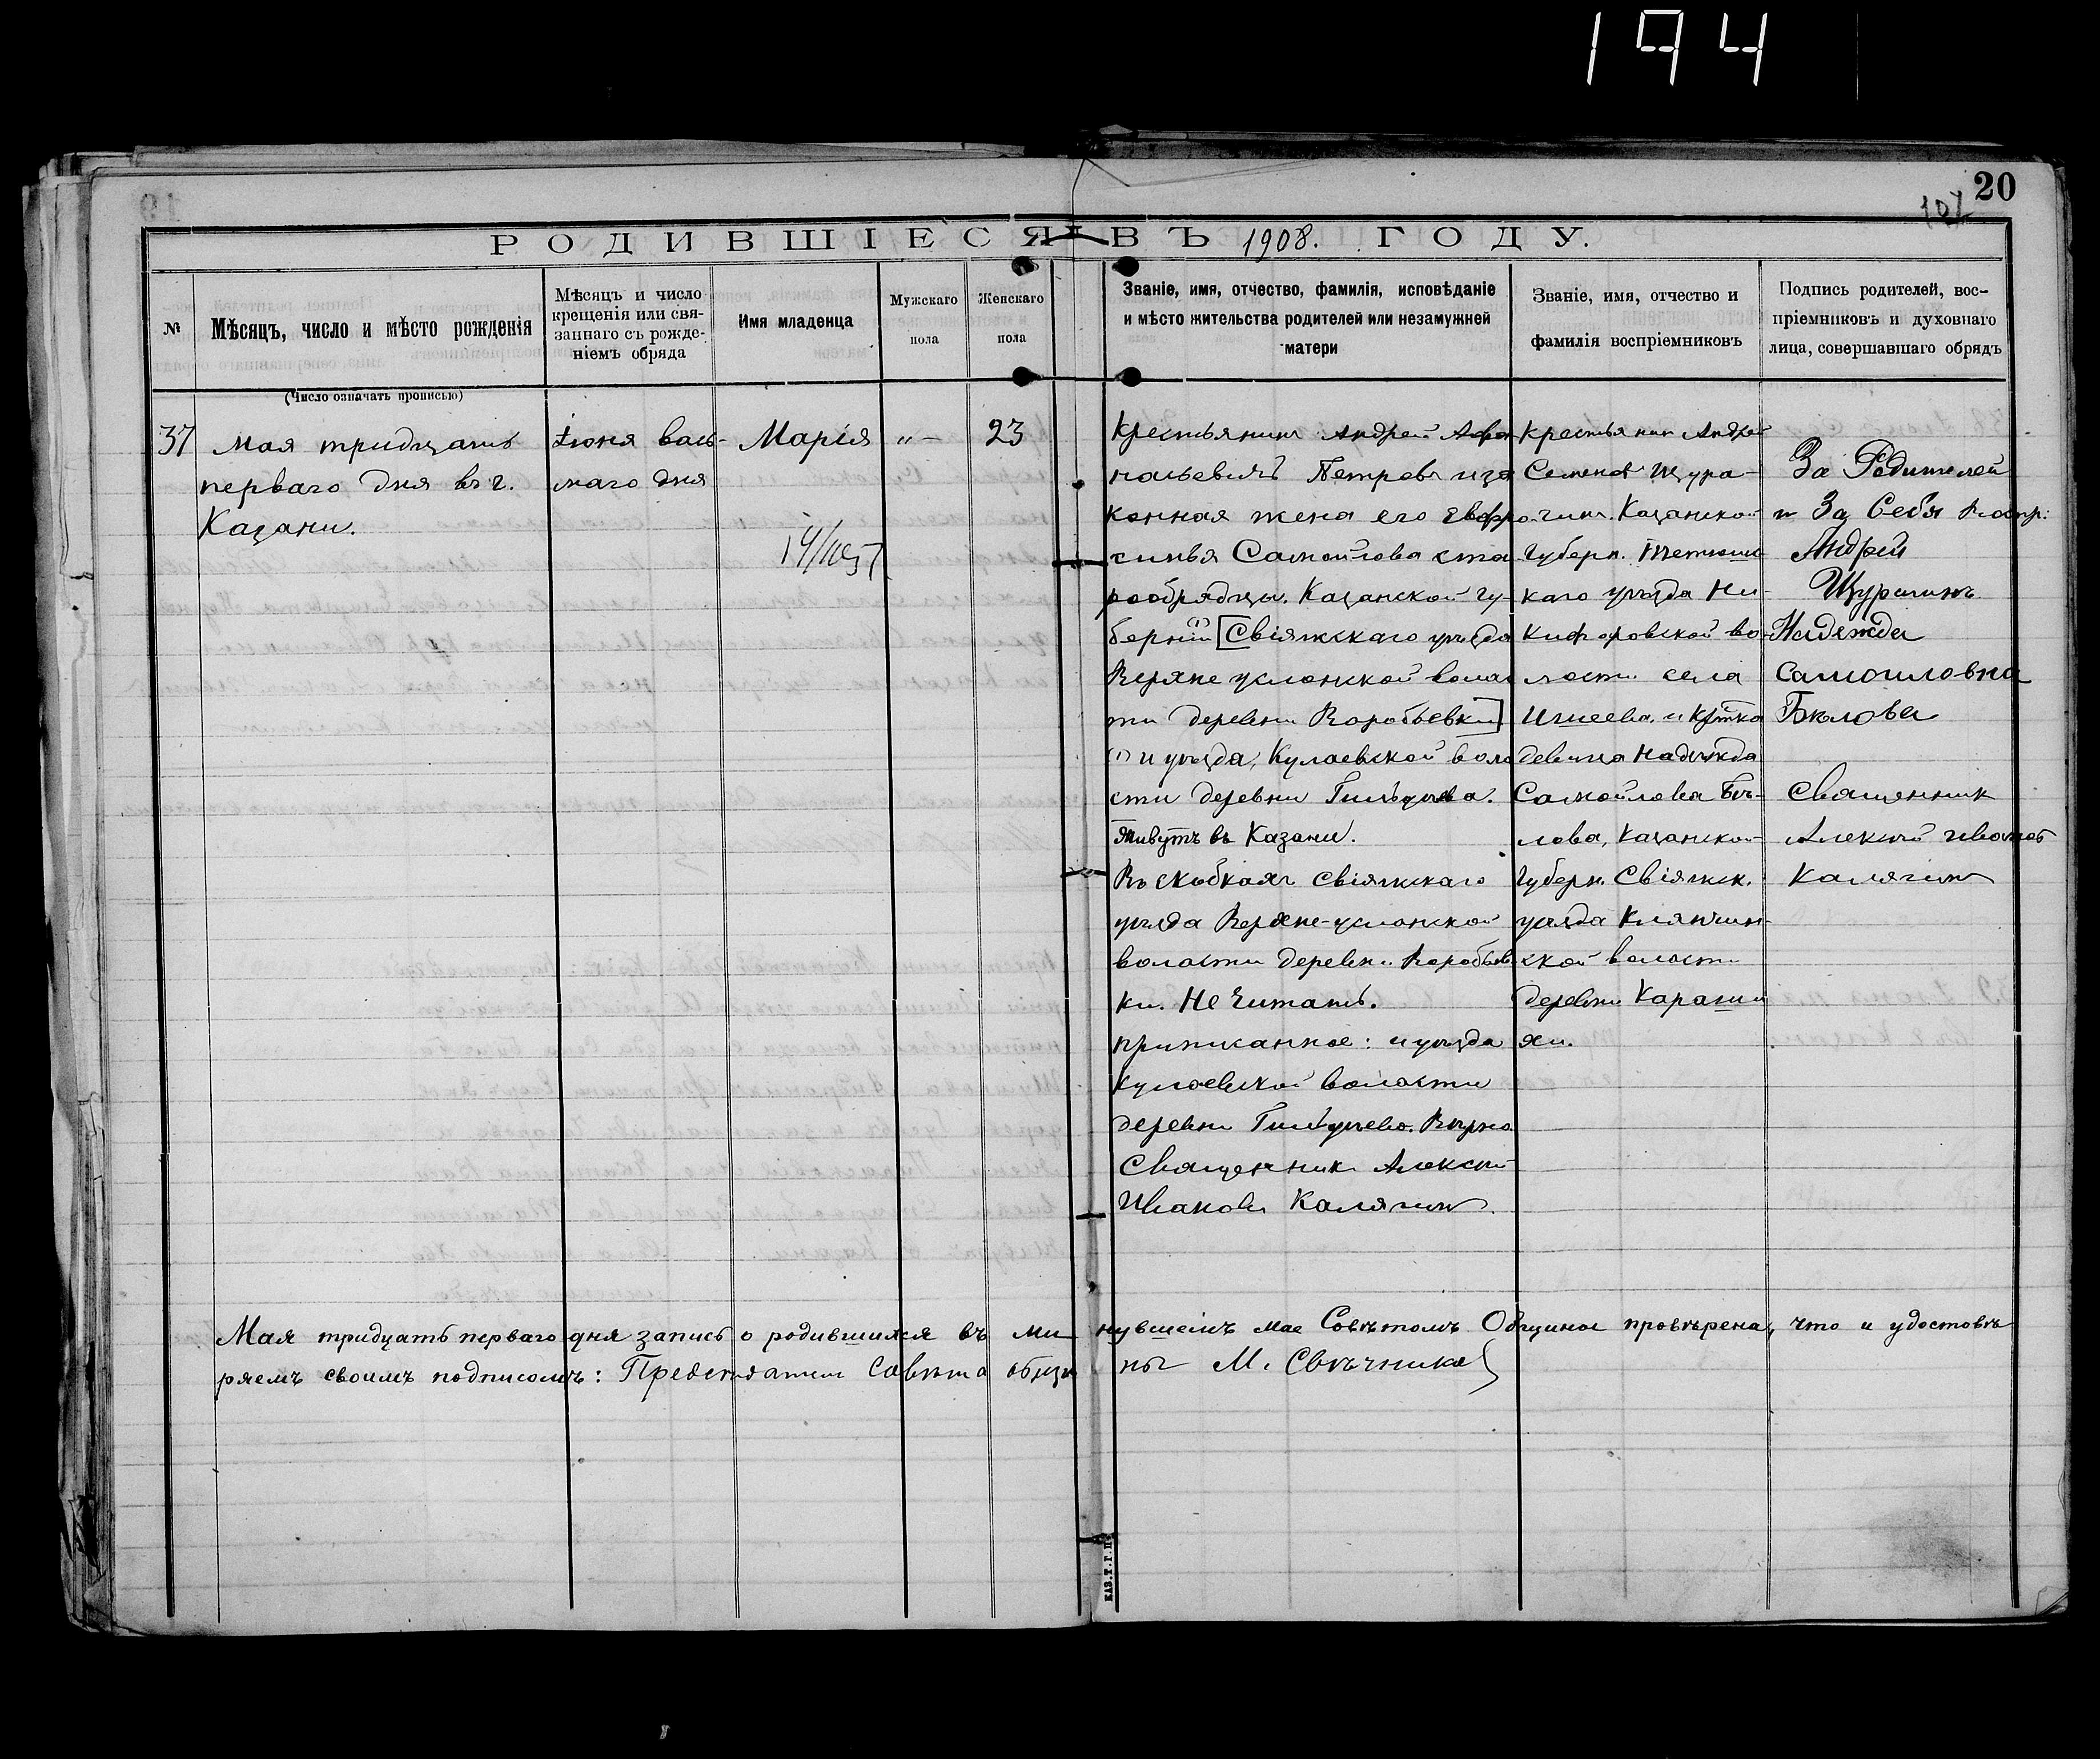 194
20
107
РОДИВШІЕСЯ ВЪ 1908. ГОДУ.
№
Мѣсяцъ, число и мѣсто рожденія
Мѣсяцъ и число
крещенія или свя-
заннаго съ рожде-
ніемъ обряда
Имя младенца
Мужскаго
пола
Женскаго
пола
Званіе, имя, отчество, фамилія, исповѣданіе
и мѣсто жительства родителей или незамужней
матери
Званіе, имя, отчество и
фамилія воспріемниковъ
Подпись родителей, вос-
пріемниковъ и духовнаго
лица, совершавшаго обрядъ
(Число означать прописью)
37
Мая тридцать
перваго дня въ г.
Казани.
Іюня вось-
маго дня
Марія
„ –
23
Крестьянинъ Андрей Афа-
насьевичъ Петровъ и за
конная жена его Евфро
синья Самойлова ста
рообрядцы. Казанской гу-
берніи [Свіяжскаго уѣзда
Верхне услонской волос
ти деревни Воробьевки]
и уѣзда, Кулаевской воло
сти деревни Гильдѣева.
Живутъ въ Казани.
Въ скобкахъ Свіяжскаго
уѣзда Верхне-услонской
волости деревни Воробьев
ки. Не читать.
приписанное: и уѣзда
Кулаевской волости
деревни Гильдѣево. Вѣрно
Священникъ Алексѣй
Ивановъ Калягинъ
Крестьянинъ Андрей
Семеновъ Щура-
гинъ. Казанской
Губерн. Тетюшс
каго уѣзда Ни-
кифоровской во-
лости села
и Крестка
девица Надежда
Самойлова Бѣ-
лова, Казанской
Губерн. Свіяжск.
уѣзда Клянчин-
ской волости
деревни Караши
хи.
За Родителей
и За Себя Воспр:
Андрей
Щурагинъ
Надежда
Самоиловна
Бѣлова
Священник
Алексѣй Ивановъ
Калягинъ
Мая тридцать перваго дня запись о родившихся въ ми нувшемъ мае Совѣтомъ Общиное провѣрена, что и удостовѣ
ряемъ своимъ подписомъ: Председатель Совѣта общи ны М. Свѣчников
КАЗ.Т.Г.П.